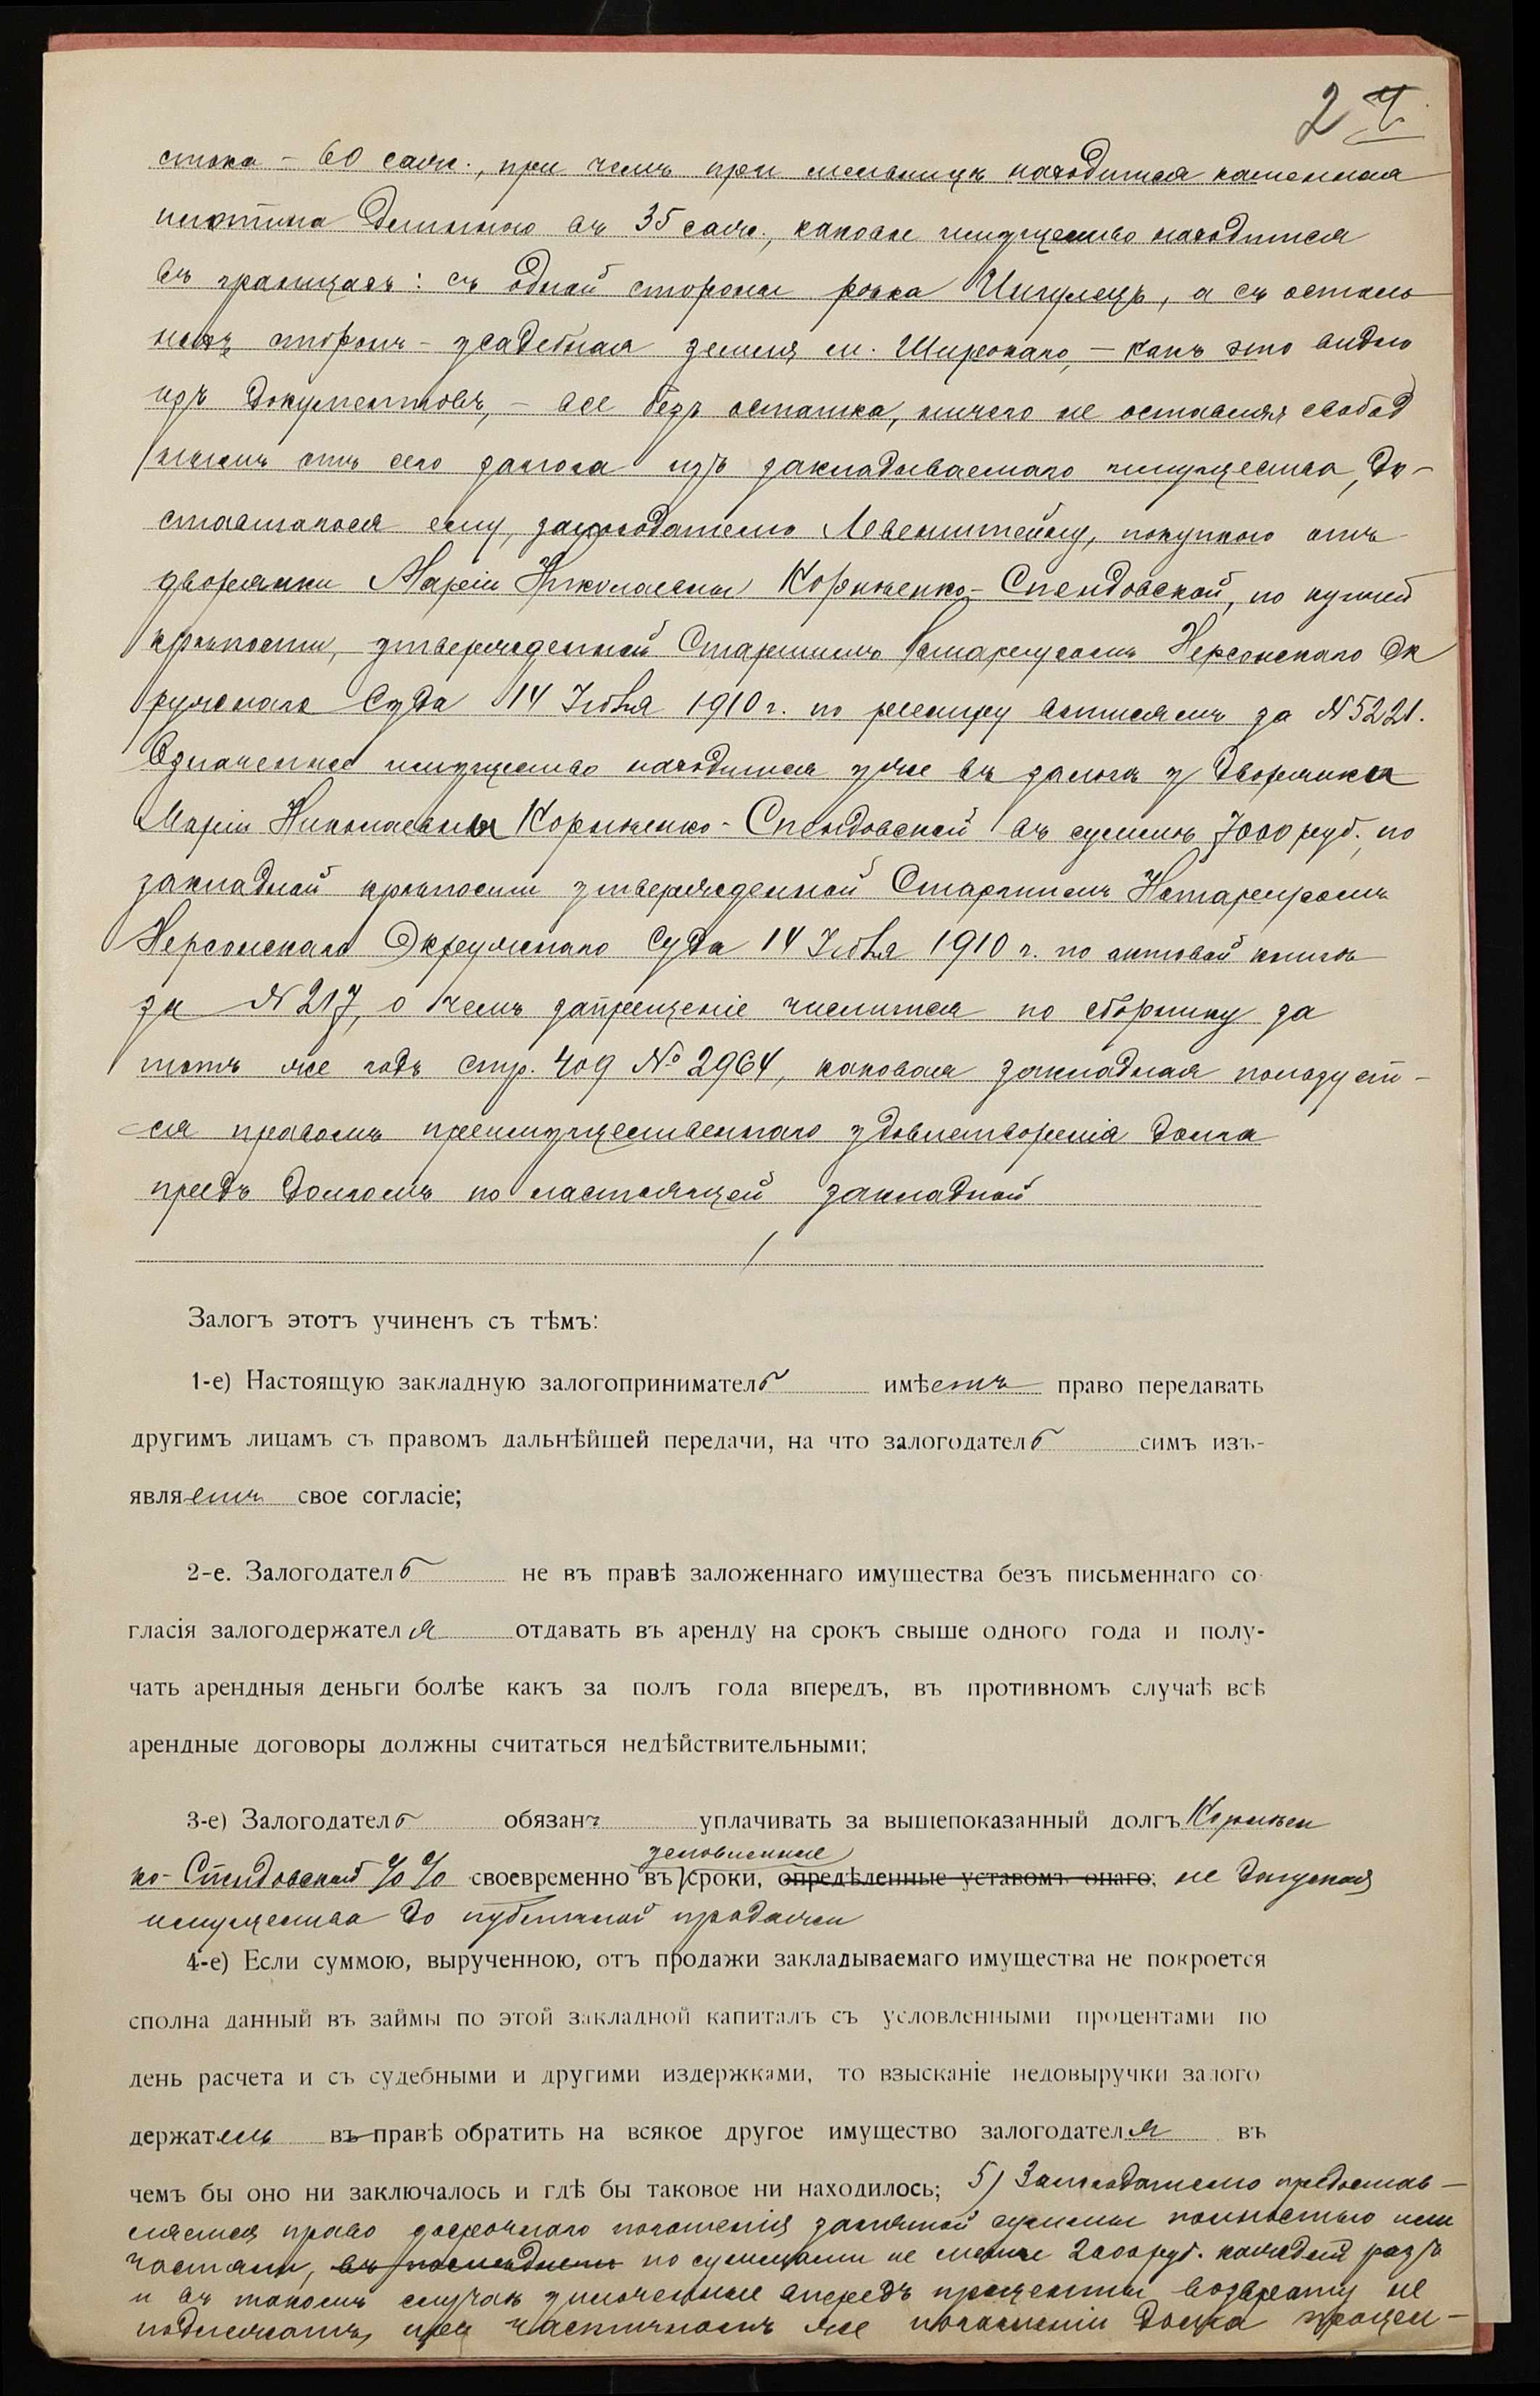 2 4
стока – 60 саж., при чемъ при мельницѣ находится каменная
плотина длиною въ 35 саж., каковое имущество находится
въ границахъ: съ одной стороны рѣка Ингулецъ, а съ осталь
ныхъ сторонъ – усадебная земля м. Широкаго, – какъ это видно
изъ документовъ, – все безъ остатка, ничего не оставляя свобод
нымъ отъ сего залога изъ закладываемаго имущества, до–
ставшагося ему, залогодателю Левенштейну, покупкою отъ
дворянки Маріи Николаевны Корниенко-Спендовской, по купчей
крѣпости, утвержденной Старшимъ Нотаріусомъ Херсонскаго Ок
ружнаго Суда 14 Іюля 1910 г. по реестру выписямъ за № 5221.
Означенное имущество находится уже въ залогѣ у дворянки
Маріи Николаевны Корниенко-Спендовской въ суммѣ 7000 руб., по
закладной крѣпости утвержденной Старшимъ Нотаріусомъ
Херсонскаго Окружнаго Суда 14 Іюля 1910 г. по актовой книгѣ
за № 217, о чемъ запрещеніе числится по сборнику за
тотъ же годъ стр. 409 № 2964, каковая закладная пользует–
ся правомъ преимущественнаго удовлетворенія долга
предъ долгомъ по настоящей закладной
Залогъ этотъ учиненъ съ тѣмъ:
1-е) Настоящую закладную залогопринимателѣ имѣетъ право передавать
другимъ лицамъ съ правомъ дальнѣйшей передачи, на что залогодатель симъ изъ-
являетъ свое согласіе;
2-е. Залогодатель не въ правѣ заложеннаго имущества безъ письменнаго со-
гласія залогодержателя отдавать въ аренду на срокъ свыше одного года и полу-
чать арендныя деньги болѣе какъ за полъ года впередъ, въ противномъ случаѣ всѣ
арендные договоры должны считаться недѣйствительными;
3-е) Залогодатель обязанъ уплачивать за вышепоказанный долгъ Корниен
условленные
ко-Спендовской %% своевременно въ сроки, опредѣленные уставомъ онаго, не допуская
имущества до публичной продажи
4-е) Если суммою, вырученною, отъ продажи закладываемаго имущества не покроется
сполна данный въ займы по этой закладной капиталъ съ условленными процентами по
день расчета и съ судебными и другими издержками, то взысканіе недовыручки залого
держатель въ правѣ обратить на всякое другое имущество залогодателя въ
чемъ бы оно ни заключалось и гдѣ бы таковое ни находилось; 5) Залогодателю предостав–
ляется право досрочнаго погашенія занятой суммы полностью или
частями, въ последнемъ по суммами не менѣе 2000 руб. каждый разъ
и въ такомъ случаѣ уплоченные впередъ проценты возврату не
подлежатъ, при частичномъ же погашеніи долга процен–